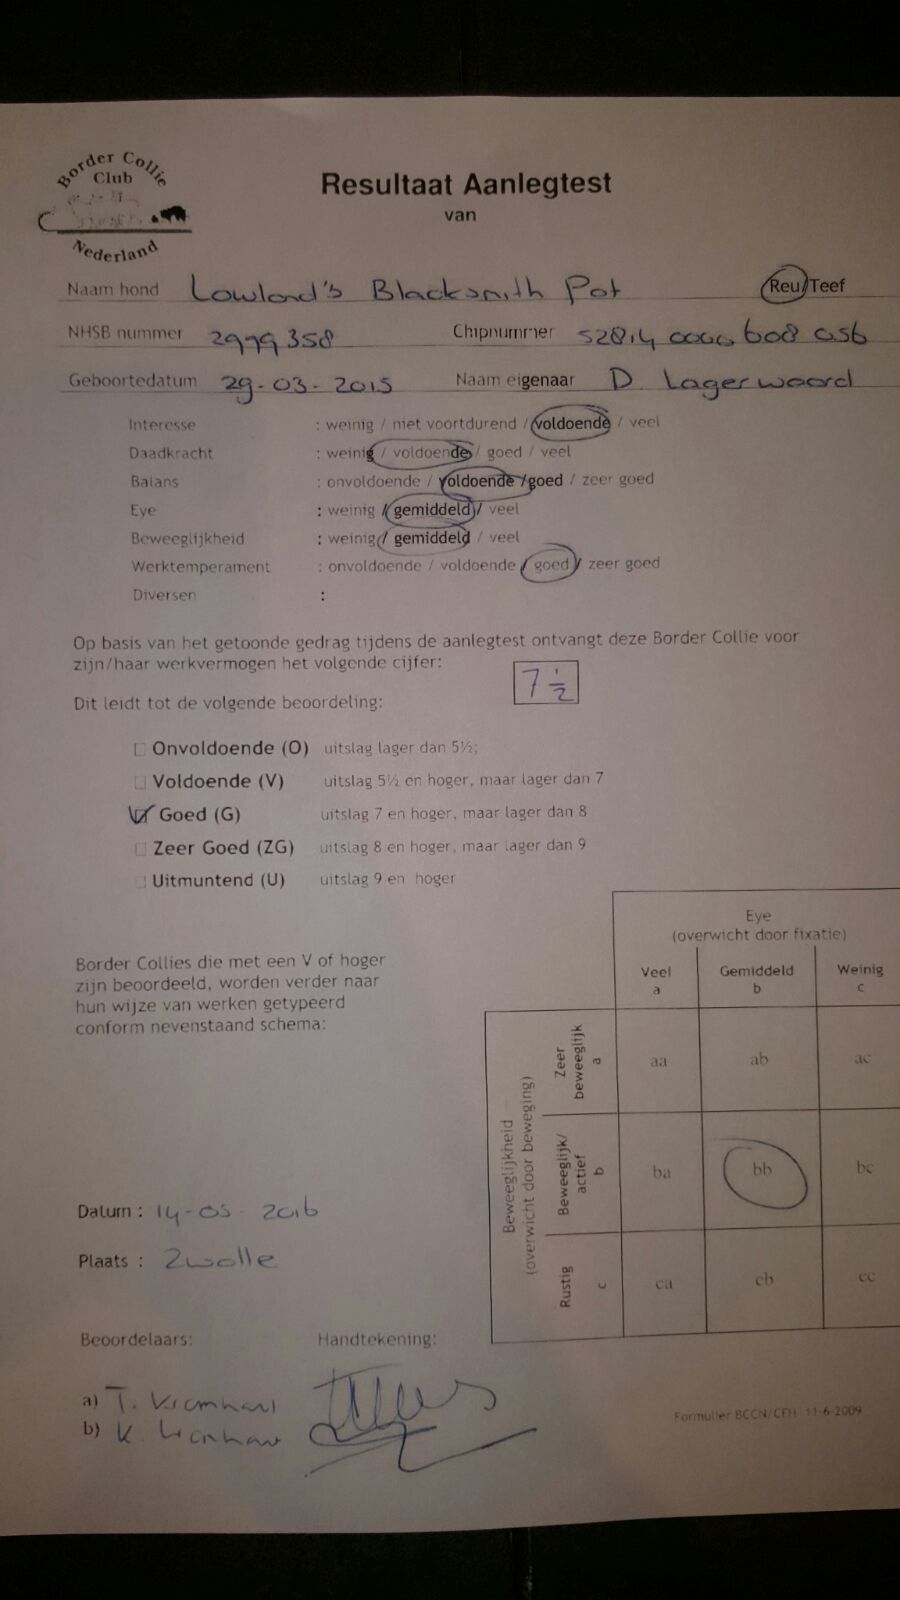 Border Collie
Club
Nederland
Resultaat Aanlegtest
van
Naam hond Lowland's Blacksmith Pat Reu/Teef
NHSB nummer 2979358 Chipnummer 528.4 0000 608 056
Geboortedatum 29-03-2015 Naam eigenaar D. Lagerwaard
Interesse : weinig / niet voortdurend / voldoende / veel
Daadkracht : weinig / voldoende / goed / veel
Balans : onvoldoende / voldoende / goed / zeer goed
Eye : weinig / gemiddeld / veel
Beweeglijkheid : weinig / gemiddeld / veel
Werktemperament : onvoldoende / voldoende / goed / zeer goed
Diversen :
Op basis van het getoonde gedrag tijdens de aanlegtest ontvangt deze Border Collie voor
zijn/haar werkvermogen het volgende cijfer:
7 ½
Dit leidt tot de volgende beoordeling:
Onvoldoende (O) uitslag lager dan 5½;
Voldoende (V) uitslag 5½ en hoger, maar lager dan 7
Goed (G) uitslag 7 en hoger, maar lager dan 8
Zeer Goed (ZG) uitslag 8 en hoger, maar lager dan 9
Uitmuntend (U) uitslag 9 en hoger
Border Collies die met een V of hoger
zijn beoordeeld, worden verder naar
hun wijze van werken getypeerd
conform nevenstaand schema:
Eye
(overwicht door fixatie)
Veel Gemiddeld Weinig
a b c
Beweeglijkheid
(overwicht door beweging)
Zeer
beweeglijk
a
aa ab ac
Beweeglijk/
actief
b
ba bb bc
Rustig
c
ca cb cc
Datum : 14-05-2016
Plaats : Zwolle
Beoordelaars: Handtekening:
a) T.
b) K.
Formulier BCCN/CFH 11-6-2009